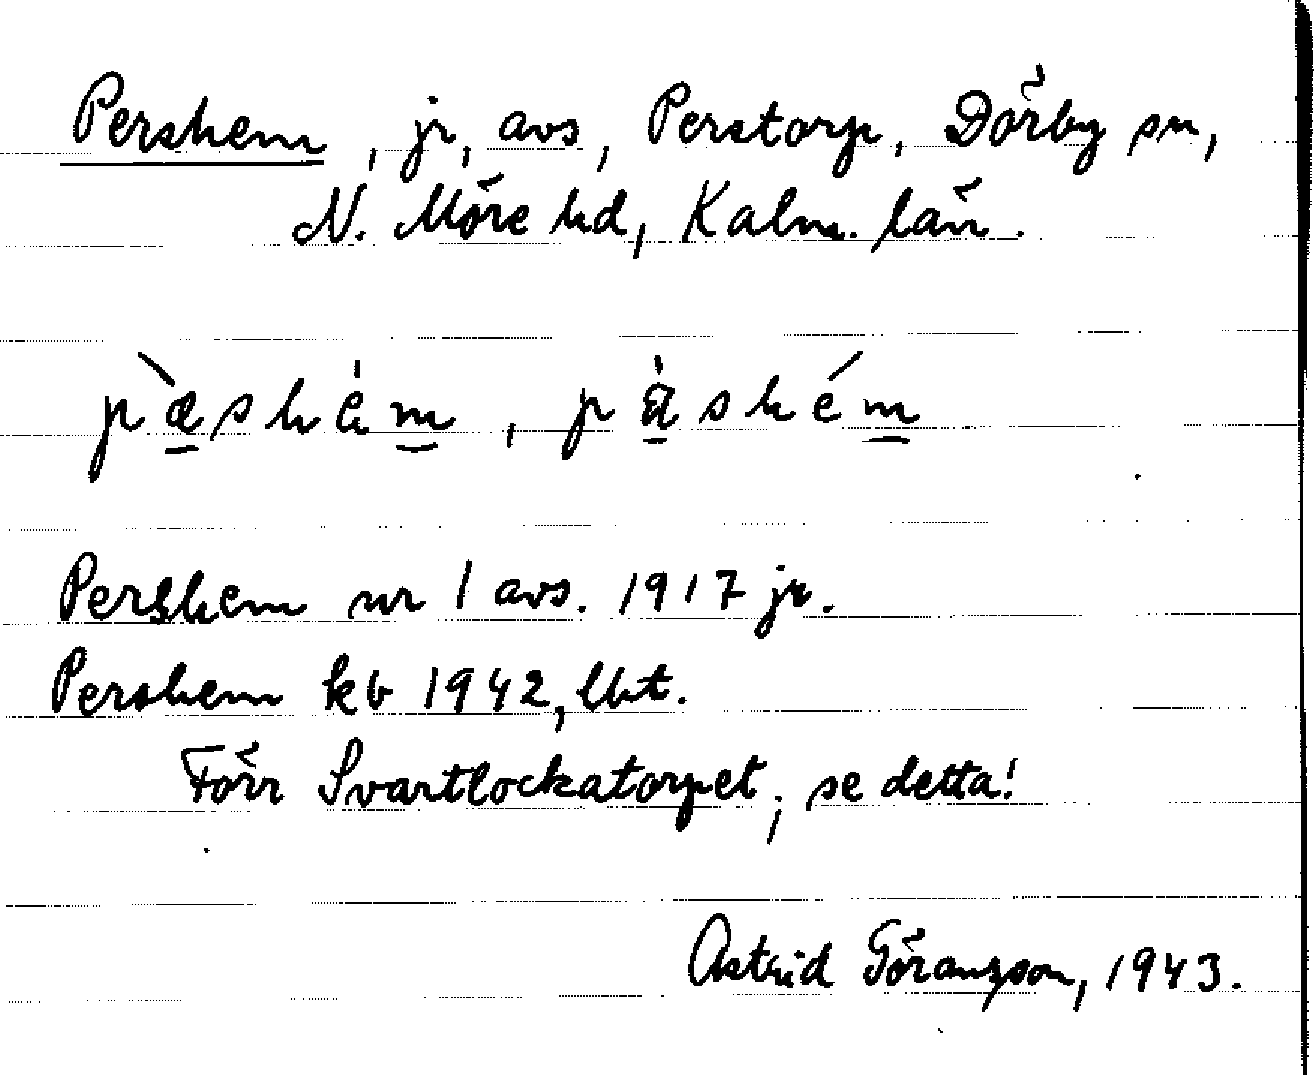 Pershem, jr, avs, Perstorp, Dörby sn,
N. Möre hd, Kalm. län.
pæ̀shem, pæshém
Pershem nr 1 avs. 1917 jr.
Pershem kb 1942, lkt.
Förr Svartlockatorpet; se detta!
Astrid Göranzson, 1943.